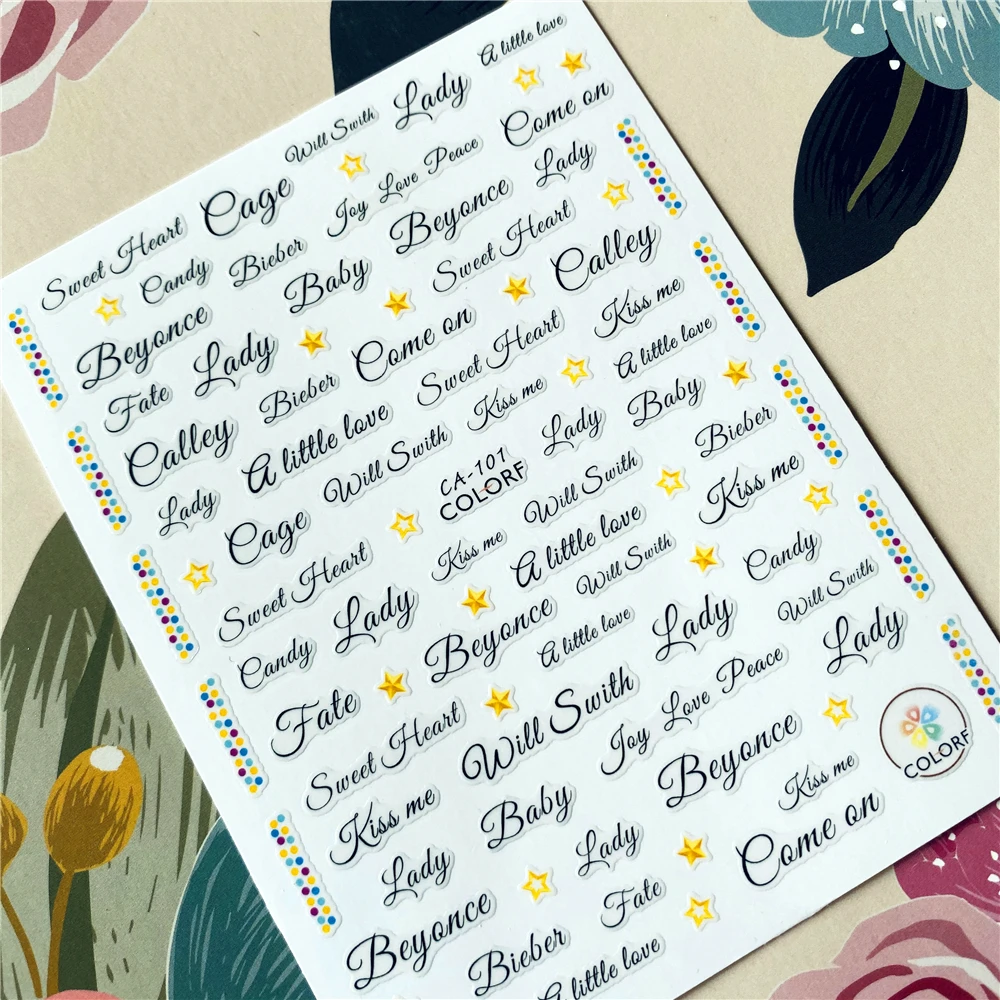 A little love
Will Swith Lady
Come on
Joy Love Peace Lady
Sweet Heart Cage
Candy Bieber Beyonce
Baby Sweet Heart Calley
Beyonce Lady Come on Kiss me
Fate Bieber Sweet Heart A little love
Calley A little love Kiss me Baby
Lady Will Swith Lady Bieber
CA-101
COLORF
Cage Will Swith Kiss me
Sweet Heart Kiss me A little love Candy
Candy Lady Will Swith Will Swith
Beyonce A little love Lady Lady
Fate
Sweet Heart Will Swith Joy Love Peace
COLORF
Kiss me Baby Beyonce Kiss me
Lady Lady Come on
Beyonce Bieber Fate
A little love